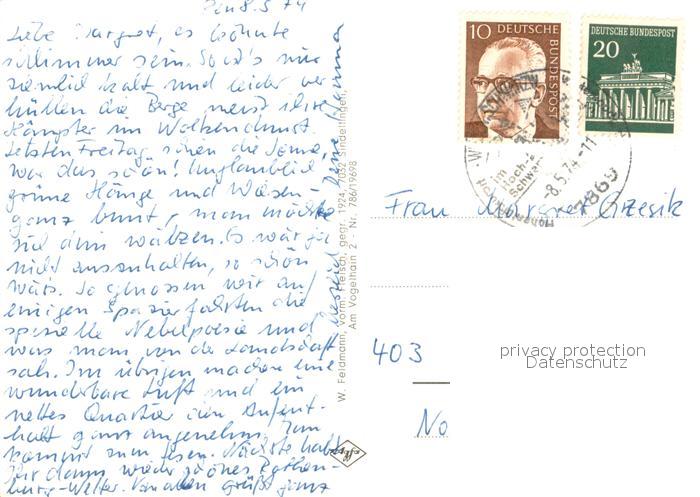 Den 8.5.74
Liebe Margret, es könnte
schlimmer sein. So ist's nur
ziemlich kalt, und leider ver-
hüllen die Berge meist ihre
Häupter im Wolkendunst.
Letzten Freitag schien die Sonne,
war das schön! Unglaublich
grüne Hänge und Wiesen
ganz bunt, man möchte
sich drin wälzen. Es wär ja
nicht auszuhalten, so schön
wärs. So genossen wir auf
einigen Spazierfahrten die
spezielle Nebelpoesie und
was man von der Landschaft
sah. Im übrigen machen eine
wunderbare Luft und ein
nettes Quartier den Aufent-
halt ganz angenehm. Man
kommt zum Lesen. Nächste
dann wieder schönes
-Wetter. Von allen grüßt ganz
Deine
W. Feldmann, vorm. Fleisch, gegr. 1924, 7032 Sindelfingen,
Am Vogelhain 2 - Nr. 786/19698
10 DEUTSCHE BUNDESPOST
20 DEUTSCHE BUNDESPOST
im
Hoch-
Schwar
-8.5.74-11
7869
Frau Margret Grzesik
403
No
privacy protection
Datenschutz